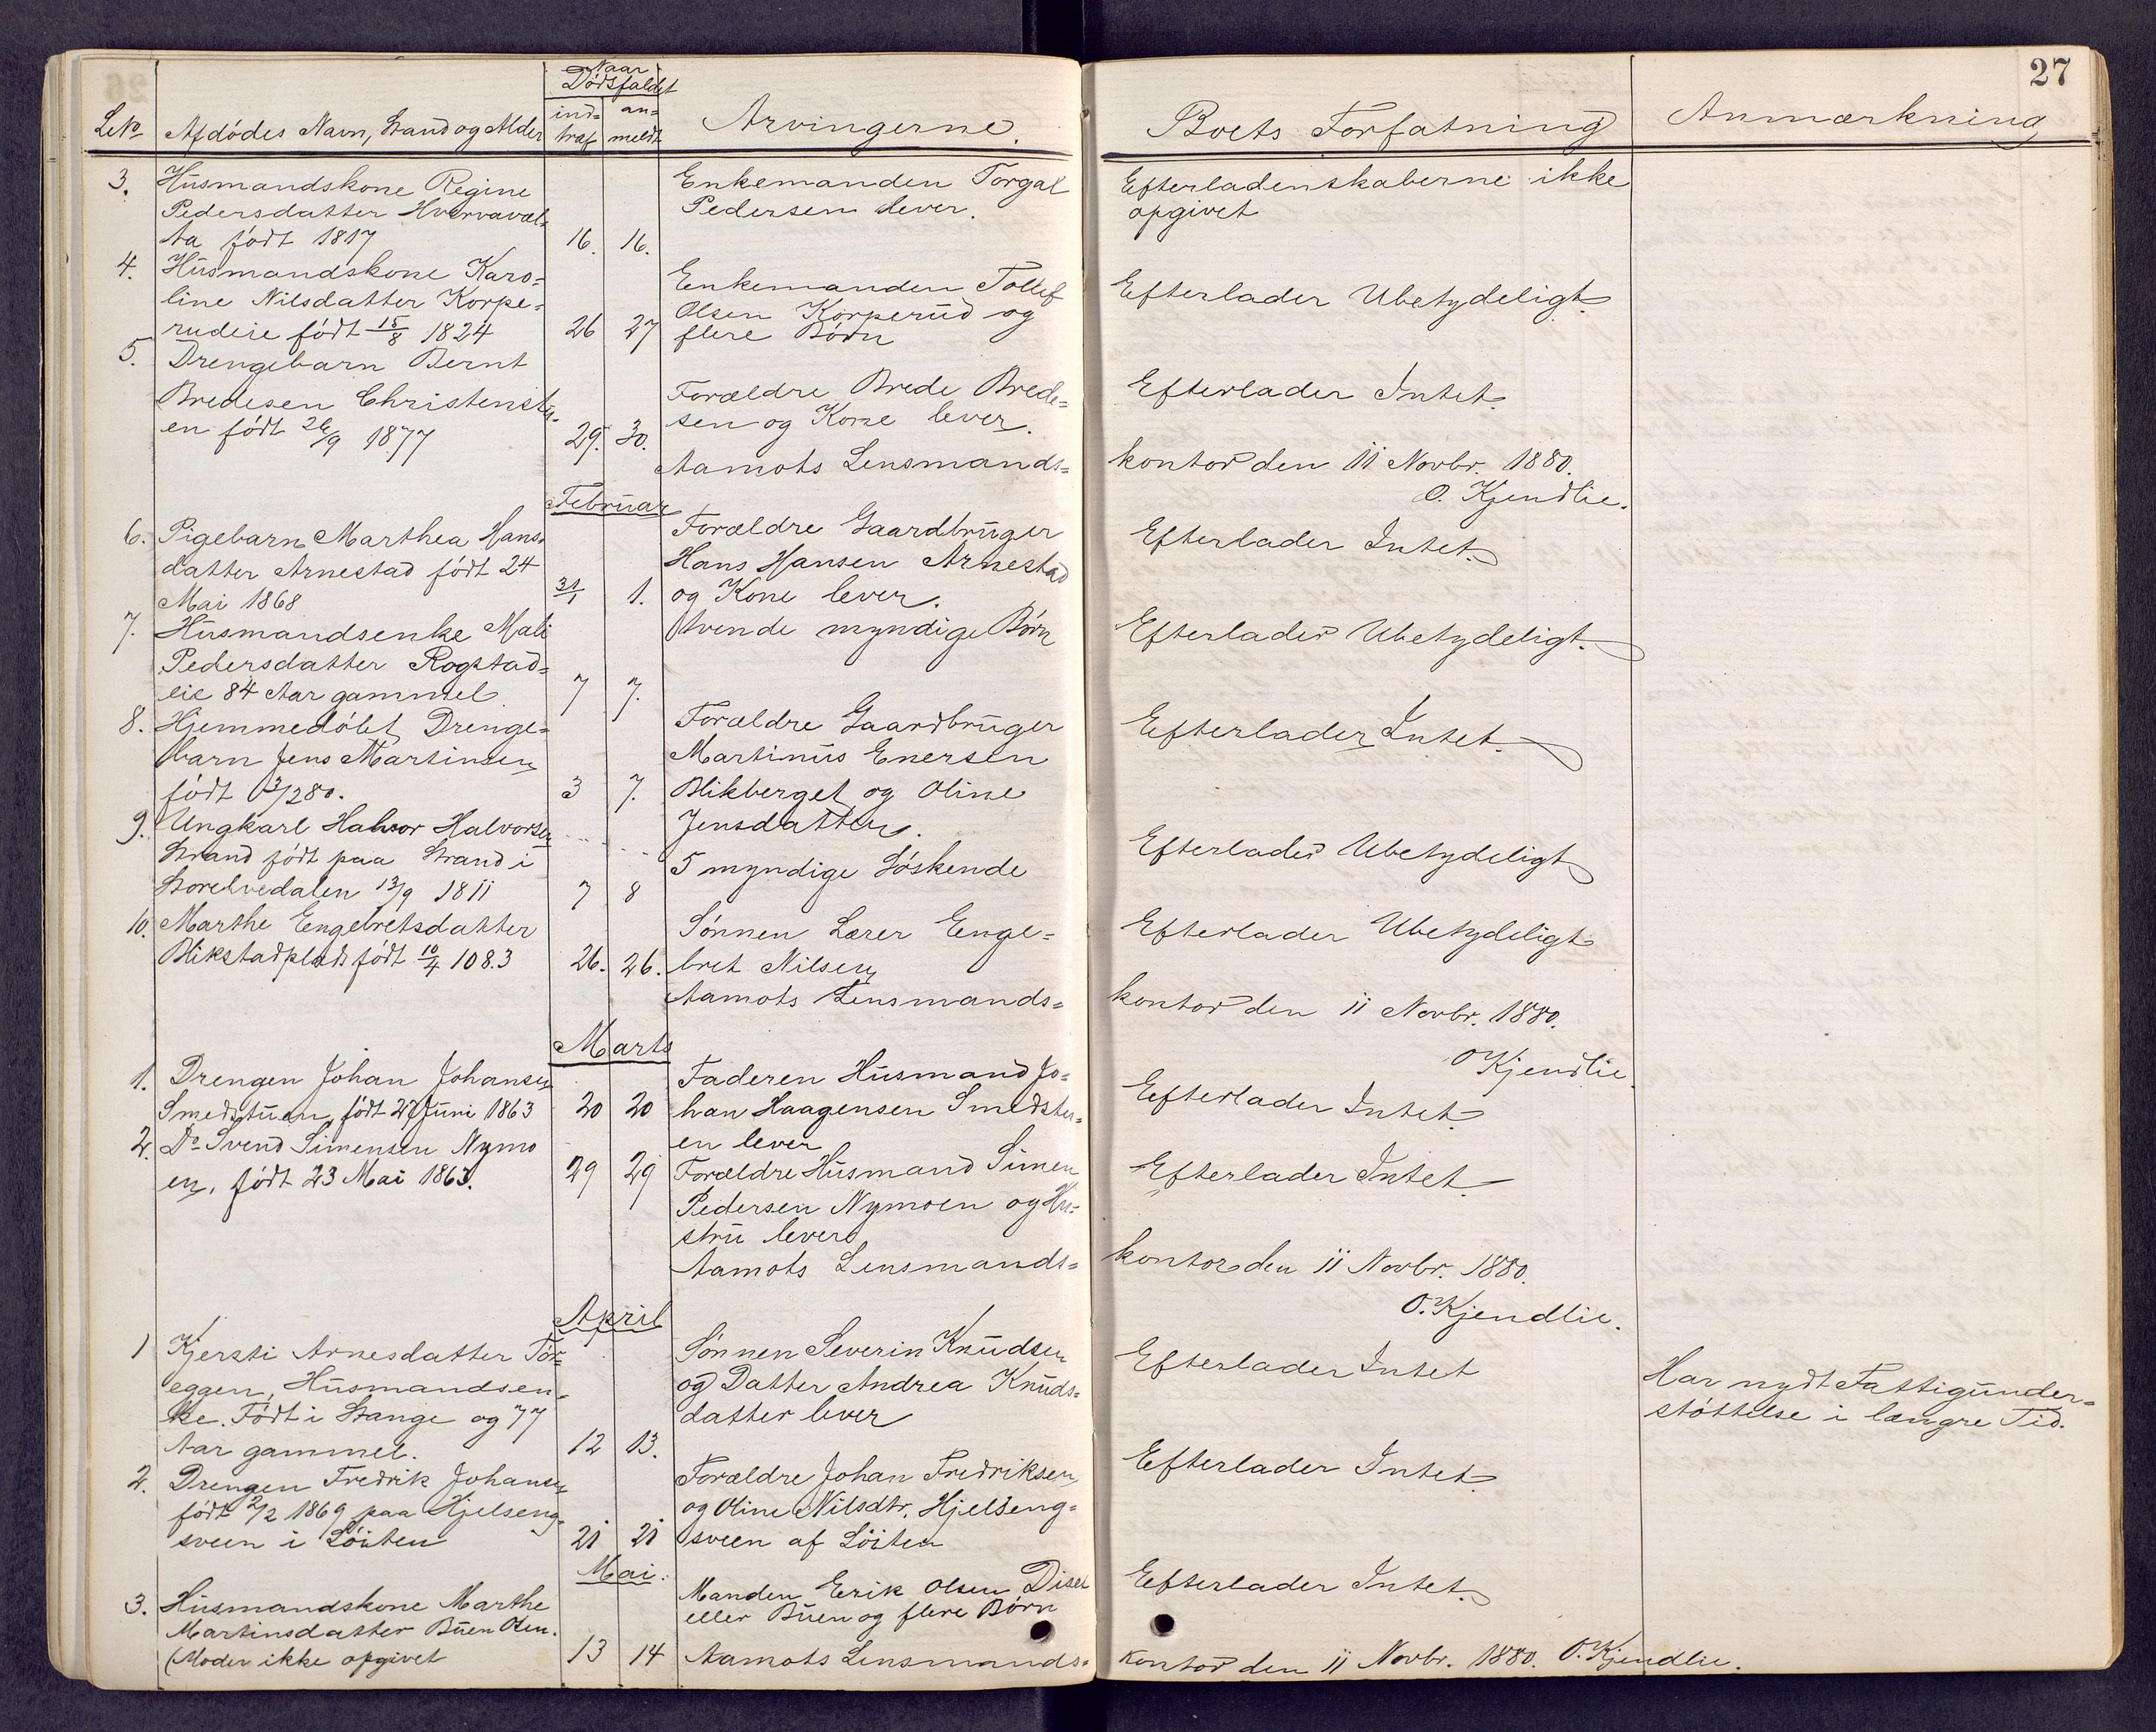 27
LNo
Afdödes Navn, Stand og Alder
Naar
Dödsfaldet
ind-
traf
an-
meldt
Arvingerne.
Boets Forfatning
Anmærkning
3. Husmandskone Regine
Pedersdatter
ta födt 1817
16. 16.
Enkemanden Torgal
Pedersen lever.
Efterladenskaberne ikke
opgivet
4. Husmandskone Karo=
line Nilsdatter Korpe=
rudeie födt 15/8 1824
26 27
Enkemanden Tollef
Olsen Korperud og
flere Börn
Efterlader Ubetydeligt.
5. Drengebarn Bernt
Bredesen Christenstu-
en födt 26/9 1877
29. 30.
Forældre Brede Brede=
sen og Kone lever.
Efterlader Intet.
Aamots Lensmands=
kontor den 11 Novbr. 1880.
O. Kjendlie.
Februar
6. Pigebarn Marthea Hans-
datter Arnestad födt 24
Mai 1868
31/1 1.
Forældre Gaardbruger
Hans Hansen Arnestad
og Kone lever.
Efterlader Intet.
7. Husmandsenke Mali
Pedersdatter Rogstad=
eie 84 Aar gammel
7 7.
tvende myndige Börn
Efterlader Ubetydeligt.
8. Hjemmedöbt Drenge=
barn Jens Martinsen
födt 3/2 80.
3 7.
Forældre Gaardbruger
Martinus Enersen
Blikberget og Oline
Jensdatter.
Efterlader Intet.
9. Ungkarl Halvor Halvorsen
Strand födt paa Strand i
Storelvedalen 13/9 1811
7 8
5 myndige Söskende
Efterlader Ubetydeligt
10. Marthe Engebretsdatter
Blikstadplads födt 10/4 108.3
26. 26.
Sönnen Lærer Enge=
bret Nilsen
Efterlader Ubetydeligt
Aamots Lensmands=
kontor den 11 Novbr. 1880.
O Kjendlie.
Marts
1. Drengen Johan Johansen
Smedstuen, födt 27 Juni 1863
20 20
Faderen Husmand Jo=
han Haagensen Smedstu=
en lever
Efterlader Intet.
2. Do Svend Simensen Nymo
en, födt 23 Mai 1863.
29 29
Forældre Husmand Simen
Pedersen Nymoen og Hu=
stru lever
Efterlader Intet.
Aamots Lensmands=
kontor den 11 Novbr. 1880.
O. Kjendlie.
April
1 Kjersti Arnesdatter Tör=
eggen, Husmandsen-
ke. Födt i Stange og 77
Aar gammel.
12 13.
Sönnen Severin Knudsen
og Datter Andrea Knuds=
datter lever
Efterlader Intet
Har nydt Fattigunder=
stöttelse i længre Tid.
2. Drengen Fredrik Johansen
födt 2/2 1869 paa Hjelseng-
sveen i Löiten
21 21
Forældre Johan Fredriksen
og Oline Nilsdtr. Hjelseng=
sveen af Löiten
Efterlader Intet.
Mai.
3. Husmandskone Marthe
Martinsdatter Buen Osen.
(Moder ikke opgivet
13 14
Manden Erik Olsen Diset
eller Buen og flere Börn
Efterlader Intet.
Aamots Lensmands=
kontor den 11 Novbr. 1880. O. Kjendlie.